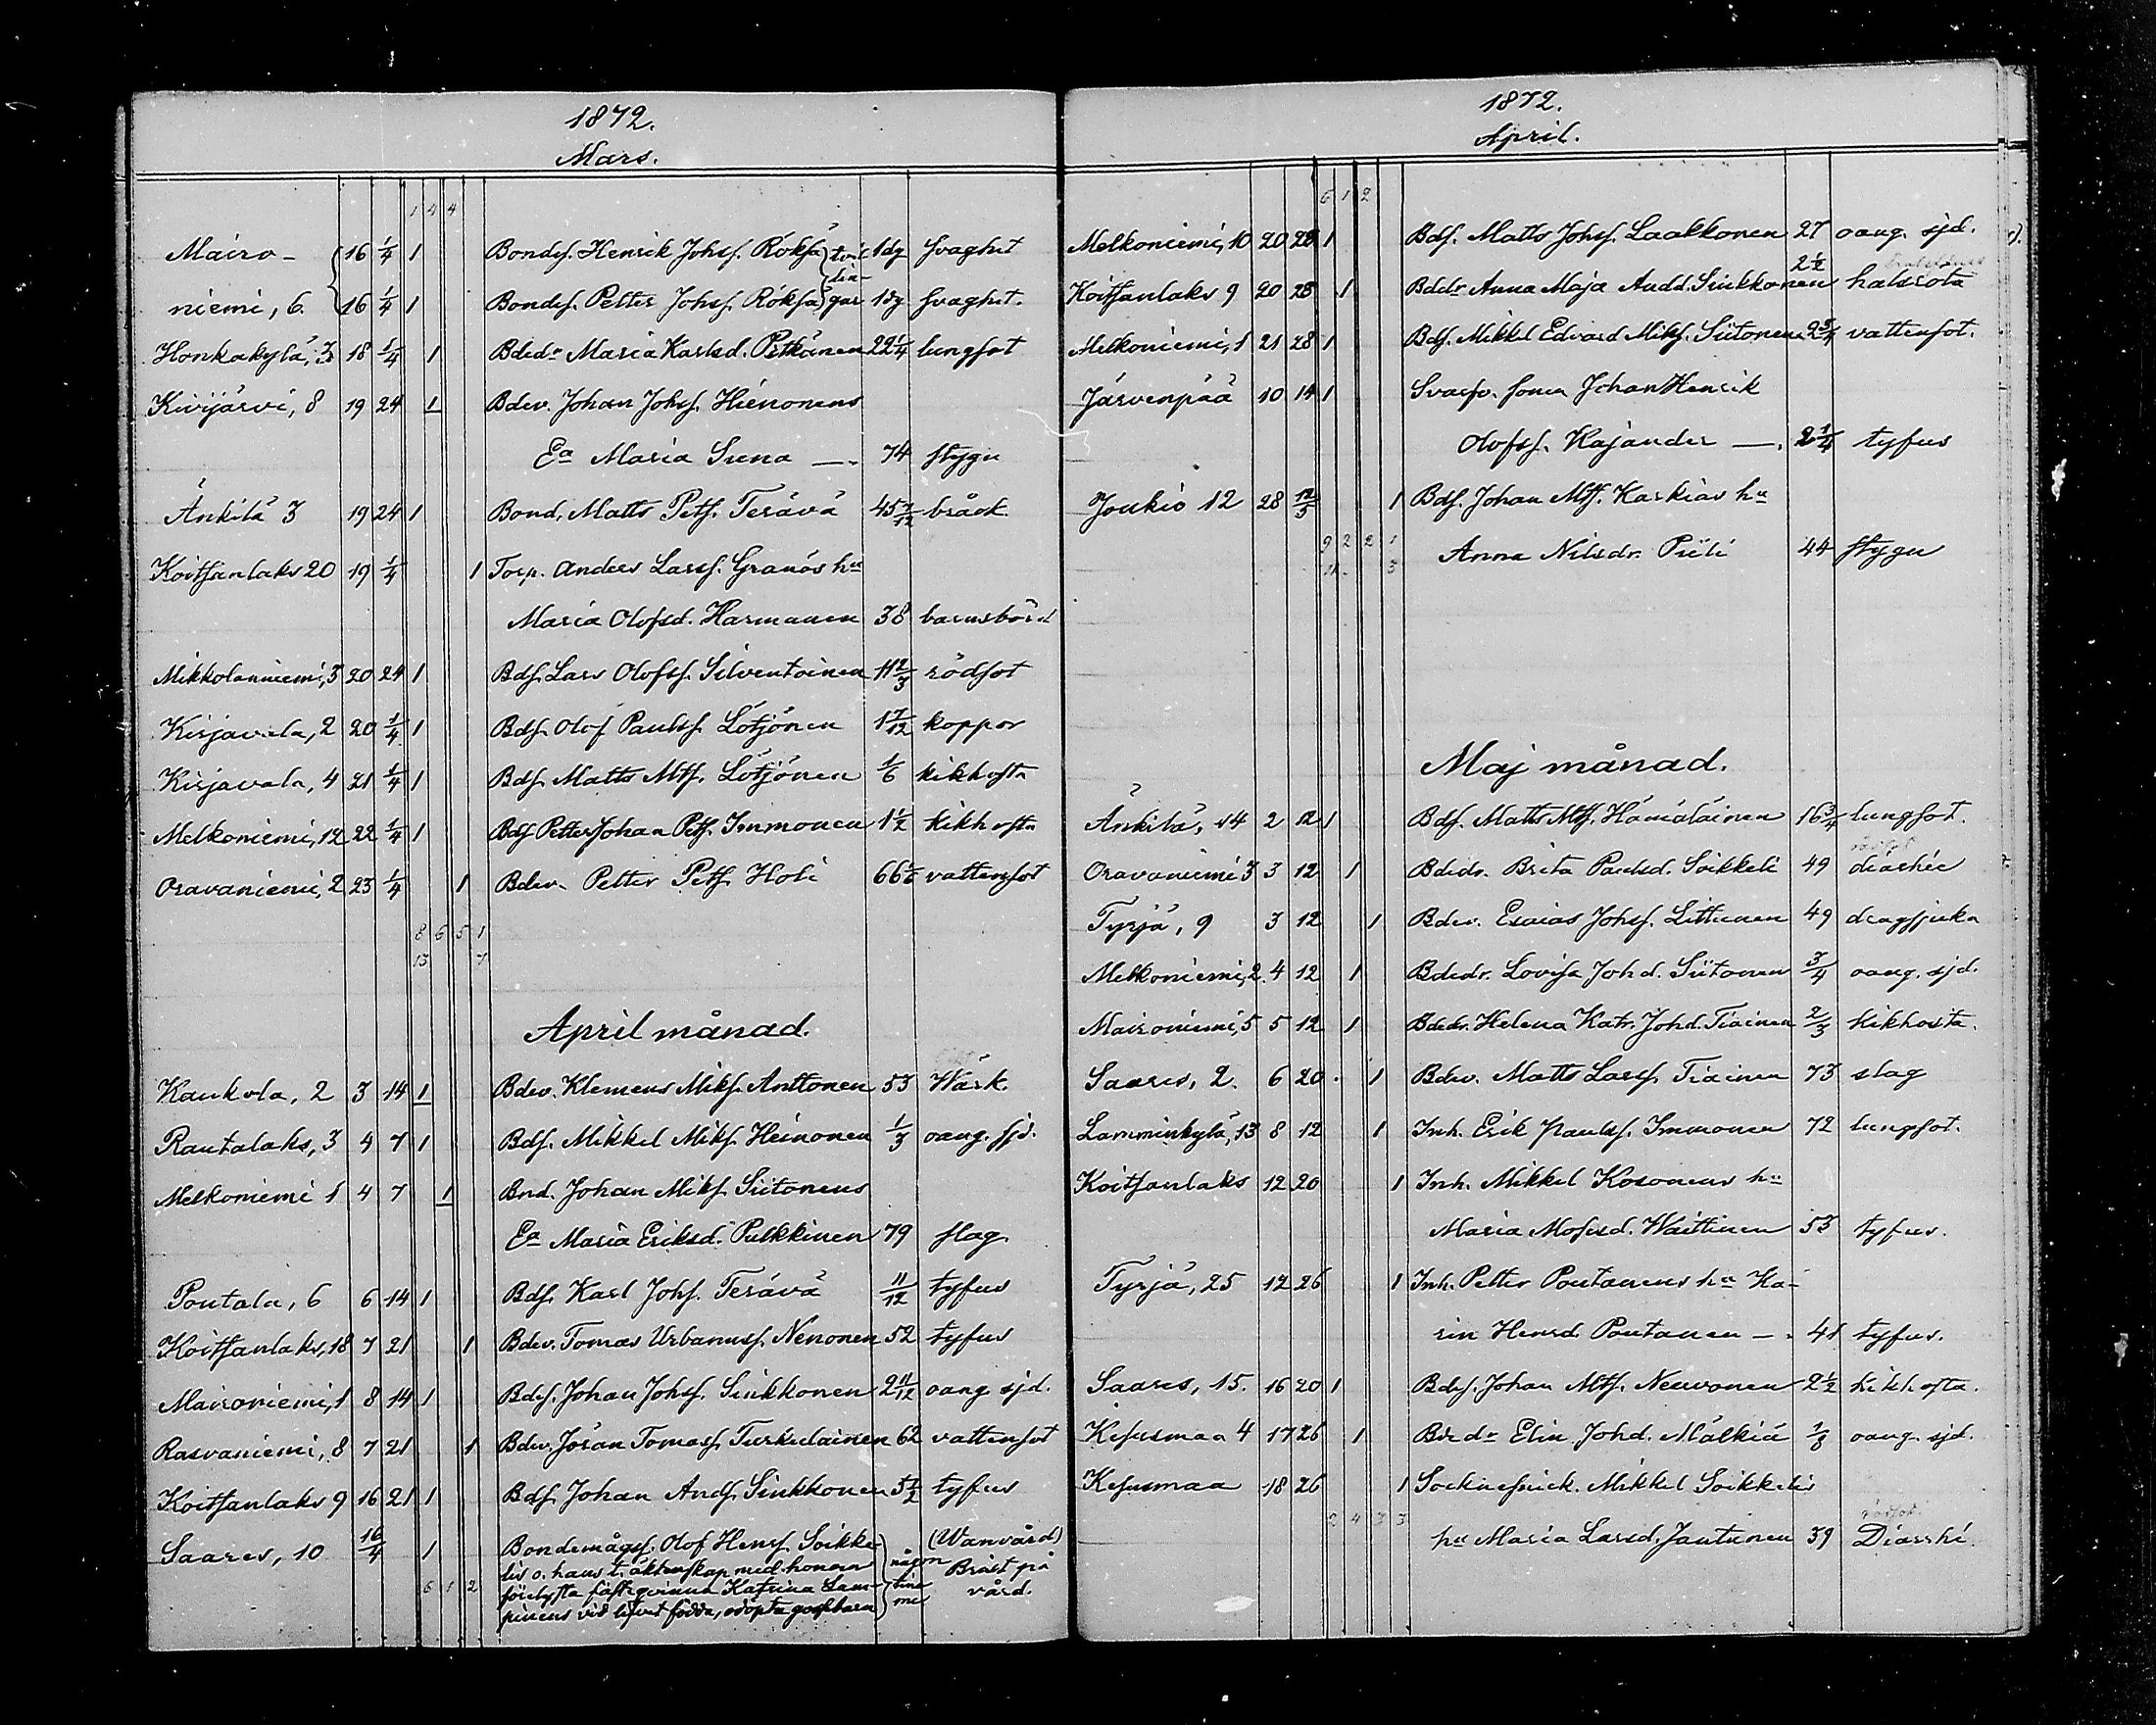 1872.
Mars.
1 4 4
Mairo- 16 1/4 1 Bondes. Henrik Johsf. Röksä tvil- 1 dg svaghet
lin-
niemi, 6. 16 1/4 1 Bondes. Petter Johsf. Röksä gar 1 dg svaghet.
Honkakylä, 18 1/4 1 Bdedr Maria Karlsd. Pitkänen 22 1/4 lungsot
Kivijärvi, 8 19 24 1 Bdev. Johan Johsf. Hienonens
Ea Maria Suna — 74 stygn
Änkilä 3 19 24 1 Bond. Matts Petf. Terävä 45 7/12 bråck
Koitsanlaks 20 19 1/4 1 Torp. Anders Larsf. Granös hu
Maria Olofsd. Harmanen 38 barnsbörd
Mikkolanniemi, 3 20 24 1 Bdf. Lars Olofsf. Silventoinen 11 2/3 rödsot
Kirjavala, 2 20 1/4 1 Bdf. Olof Paulsf. Lötjönen 1 7/12 koppor
Kirjavala, 4 21 1/4 1 Bdf. Matts Mtf. Lötjönen 1/6 kikhosta
Melkoniemi, 12 22 1/4 1 Bdf Petter Johan Petf. Immonen 1 1/2 kikhosta
Oravaniemi, 2 23 1/4 1 Bdev. Petter Petf. Holi 66 1/2 vattensot
8 6 5 1
13 7
April månad.
Kaukola, 2 3 14 1 Bdev. Klemens Miksf. Anttonen 53 Wärk.
Rautalaks, 3 4 7 1 Bdf. Mikkel Miksf. Heinonen 1/3 oang. sjd.
Melkoniemi 1 4 7 1 Bnd. Johan Miksf. Siitonens
Ea Maria Eriksd. Pulkkinen 79 slag.
Poutala, 6 6 14 1 Bdf. Karl Johsf. Terävä 11/12 tyfus
Koitsanlaks, 18 7 21 1 Bdev. Tomas Urbanusf. Nenonen 52 tyfus
Maironiemi, 1 8 14 1 Bdef. Johan Johsf. Sinkkonen 2 11/12 oang. sjd.
Rasvaniemi, 8 7 21 1 Bdev. Jöran Tomasf. Turkulainen 62 vattensot
Koitsanlaks 9 16 21 1 Bdf. Johan Andf. Sinkkonen 5 1/2 tyfus
Saares, 10 16/4 1 Bondemågsf. Olof Hensf. Soikke- (Wanvård)
lis o. hans t. äktenskap med honom någon Brist på
förelysta fästeqvinna Katrina Lem- time vård.
pinens vid lifvet födda, odöpta gossbarn
6 1 2
1872.
April.
6 1 2
Melkoniemi, 10 20 28 1 Bdf. Matts Johsf. Laakkonen 27 oang. sjd.
Koitsanlaks 9 20 28 1 Bddr Anna Maja Andd. Sinkkonen 2 1/2 halsröta
Melkoniemi, 1 21 28 1 Bdf. Mikkel Edvard Miksf. Siitonen 2 3/4 vattensot.
Järvenpää 10 14 1 Svarfv. sonen Johan Henrik
Olofsf. Kajander —. 2 1/4 tyfus
Joukio 12 28 12/5 1 Bdf. Johan Mtf. Karkias hu
9 2 2 1
Anna Nilsdr. Piili 44 stygn
3
Maj månad.
Änkilä, 14 2 12 1 Bdf. Matts Mtf. Hämäläinen 16 3/4 lungsot.
Oravaniemi 3 3 12 1 Bdedr. Brita Paulsd. Soikkeli 49 diarhée
Tyrjä, 9 3 12 1 Bdev. Esaias Johsf. Littunen 49 dragsjuka
Melkoniemi, 2. 4 12 1 Bdedr. Lovisa Johd. Siitonen 3/4 oang. sjd.
Maironiemi, 5 5 12 1 Bdedr. Helena Katr. Johd. Tiainen 2/3 kikhosta.
Saares, 2. 6 20 1 Bdev. Matts Larsf. Tiainen 73 slag
Lamminkylä, 13 8 12 1 Inh. Erik Paulsf. Immonen 72 lungsot.
Koitsanlaks 12 20 1 Inh. Mikkel Kosonens hu
Maria Mosesd. Waittinen 53 tyfus.
Tyrjä, 25 12 26 1 Inh. Petter Poutanens hu Ka-
rin Hensd. Poutanen —. 41 tyfus.
Saares, 15. 16 20 1 Bdef. Johan Mtf. Neuvonen 2 1/2 kikhosta.
Kesusmaa 4 17 26 1 Bdedr Elin Johd. Mälkiä 1/3 oang. sjd.
Kesusmaa 18 26 1 Mikkel Soikkelis
2 4 3 3
hu Maria Larsd. Jantunen 39 Diarrhé.